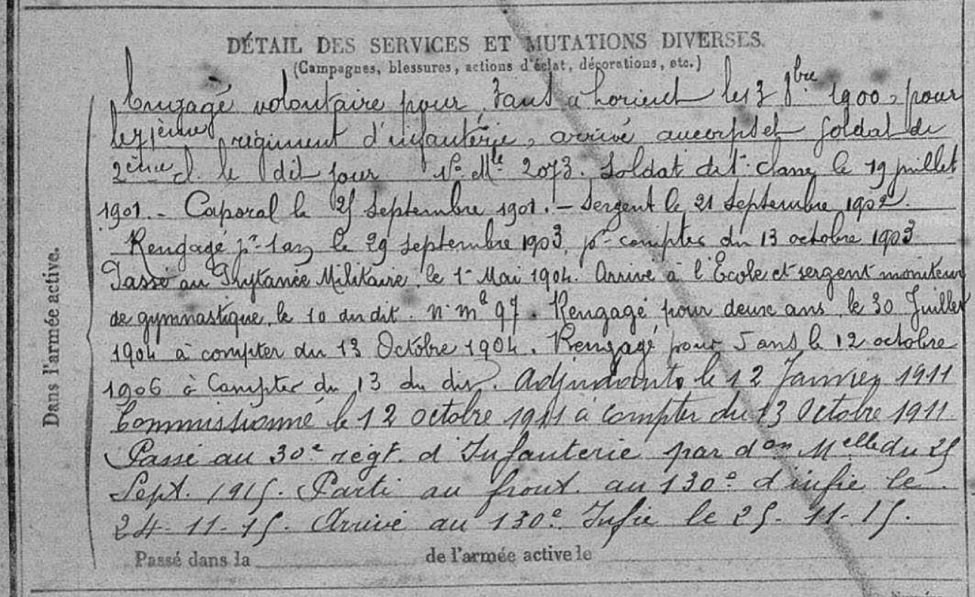 DÉTAIL DES SERVICES ET MUTATIONS DIVERSES.
(Campagnes, blessures, actions d'éclat, décorations, etc.)
Engagé volontaire pour 3 ans à Lorient le 13 8bre 1900, pour
le 71ème régiment d'infanterie, arrivé au corps et soldat de
2ème cl. le dit jour No Mle 2073. Soldat de 1e classe le 19 juillet
1901. - Caporal le 25 Septembre 1901. - Sergent le 21 Septembre 1902.
Rengagé pr 1 an le 29 septembre 1903, pr compter du 13 octobre 1903
Passé au Prytanée Militaire, le 1er Mai 1904. Arrivé à l'Ecole et sergent moniteur
de gymnastique, le 10 du dit. n. mle 97. Rengagé pour deux ans le 30 Juillet
1904 à compter du 13 Octobre 1904. Rengagé pour 5 ans le 12 octobre
1906 à Compter du 13 du dit. Adjudant le 12 Janvier 1911
Commissionné le 12 octobre 1911 à compter du 13 Octobre 1911
Passé au 30e régt. d'Infanterie par don Melle du 25
Sept. 1915. Parti au front au 130e d'infie le
24-11-15. Arrivé au 130e Infie le 25-11-15.
Passé dans la de l'armée active le
Dans l'armée active.